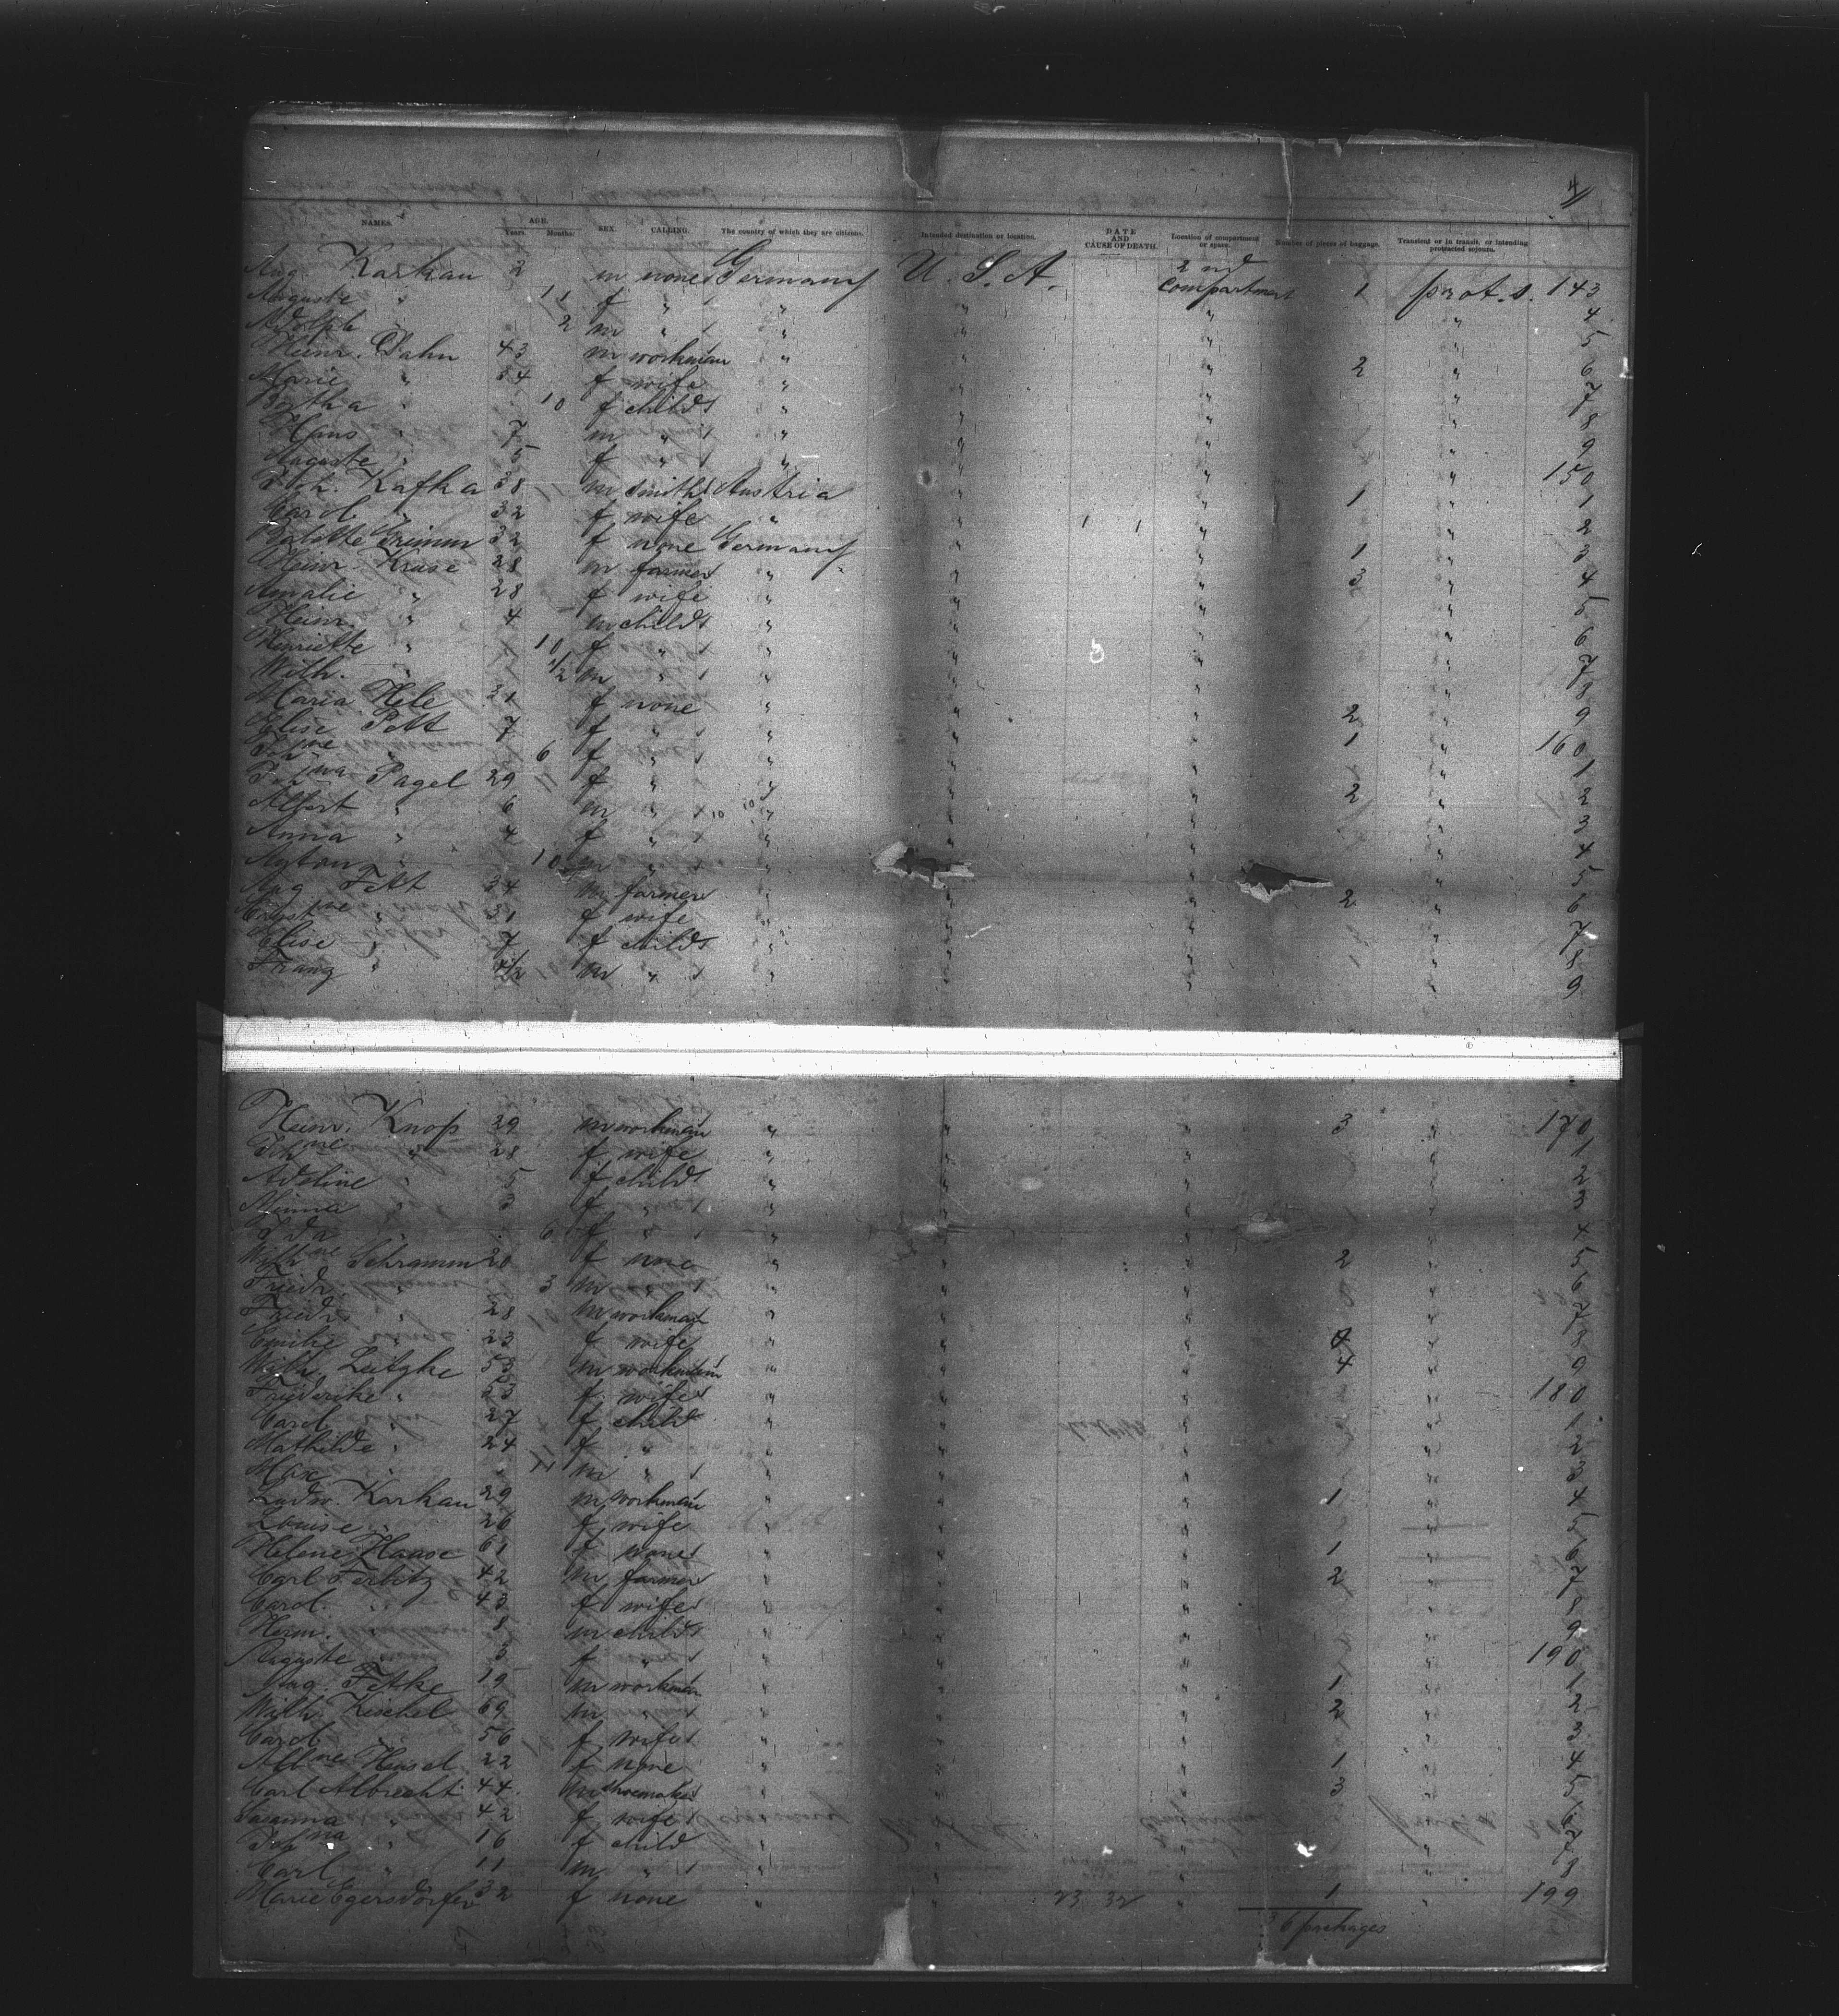 4
NAMES. AGE. Years. Months. SEX. CALLING. The country of which they are citizens. Intended destination or location. DATE AND CAUSE OF DEATH. Location of compartment or space. Number of pieces of baggage. Transient or in transit, or intending protracted sojourn.
Aug. Karkau 2 m none Germany U. S. A. 2nd compartment 1 prot. s. 143
Auguste " 11 f " " " " " 4
Adolph " 2 m " " " " " 5
Heinr. Dahn 43 m workman " " " 2 " 6
Marie " 34 f wife " " " " 7
Bertha " 10 f child " " " " 8
Hans " 7 m " " " " " 9
Auguste " 5 f " " " " " 150
Joh. Kafka 38 m smith Austria " " 1 " 1
Carol. " 32 f wife " " " " 2
Babette Grimm 32 f none Germany " " 1 " 3
Heinr. Kruse 28 m farmer " " " 3 " 4
Amalie " 28 f wife " " " " 5
Heinr. " 4 m child " " " " 6
Henriette " 10 f " " " " " 7
Wilh. " 1/2 m " " " " " 8
Maria Hele 31 f none " " " 2 " 9
Elise Pett 7 f " " " " 1 " 160
Joh ne " 6 f " " " " " 1
Joh na Pagel 29 f " " " " 2 " 2
Albert " 6 m " " " " " 3
Anna " 4 f " " " " " 4
" 10 m " " " " " 5
Aug. Fett 34 m farmer " " " 2 " 6
Ernst ne " 31 f wife " " " " 7
Elise " 7 f child " " " " 8
Franz " 4/2 m " " " " " 9
Heinr. Knop 29 m workman " " " 3 " 170
Joh ne " 28 f wife " " " " 1
Adeline " 5 f child " " " " 2
Minna " 3 f " " " " " 3
Ida " 6 f " " " " " 4
Wilh ne Schramm 20 f none " " " 2 " 5
Friedr. " 3 m " " " " " 6
Friedr. " 28 m workman " " " " 7
Emilie " 23 f wife " " " 4 " 8
Wilh. Leitzke 53 m workman " " " 4 " 9
Friederike " 53 f wife " " " " 180
Carol. " 27 f child " " " " 1
Mathilde " 24 f " " " " " 2
Max " 11 m " " " " " 3
Ludw. Karkau 29 m workman " " " 1 " 4
Louise " 26 f wife " " " " 5
Helene Haase 61 f none " " " 1 " 6
Carl Terlitz 42 m farmer " " " 2 " 7
Carol. " 43 f wife " " " " 8
Herm. " 8 m child " " " " 9
Auguste " 3 f " " " " " 190
Aug. Fettke 19 m workman " " " 1 " 1
Wilh. Kischel 69 m " " " " 2 " 2
Carol. " 56 f wife " " " " 3
Alb ne Hensel 22 f none " " " 1 " 4
Carl Albrecht 44 m shoemaker " " " 3 " 5
Susanna " 42 f wife " " " " 6
Joh na " 16 f child " " " " 7
Carl " 11 m " " " " " 8
Marie Egersdorfer 32 f none " " 1 " 199
36 packages